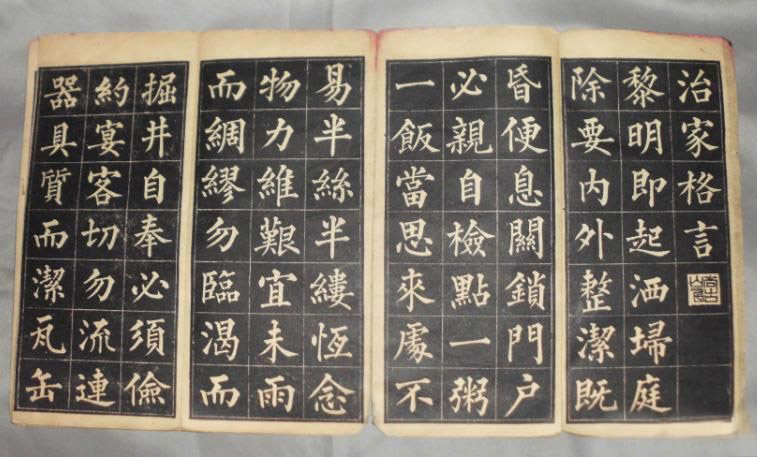 治家格言
尚古山房
黎明即起洒掃庭
除要内外整潔既
昏便息關鎖門户
必親自檢點一粥
一飯當思來處不
易半絲半縷恆念
物力維艱宜未雨
而綢繆勿臨渴而
掘井自奉必須儉
約宴客切勿流連
器具質而潔瓦缶